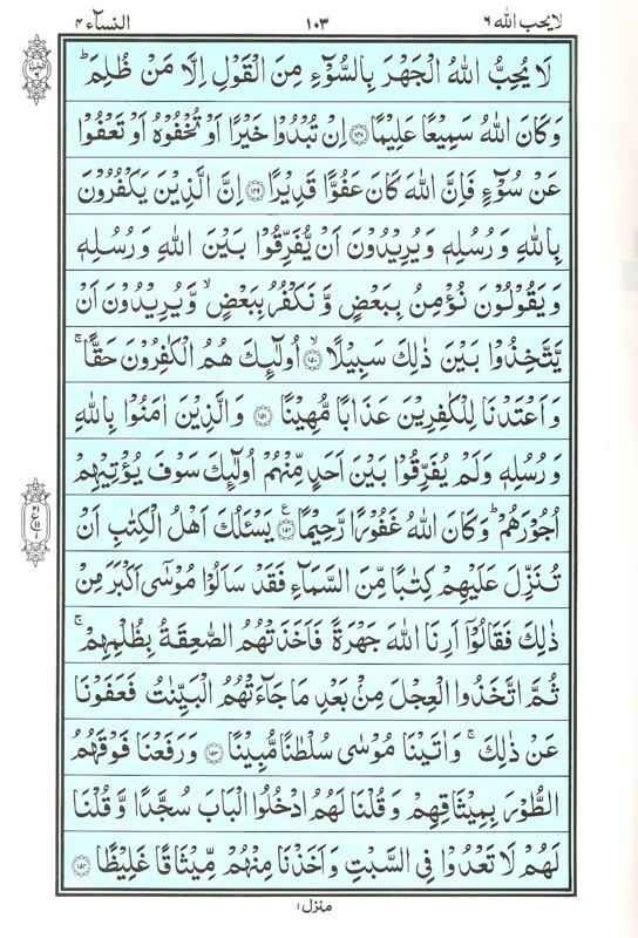 النساء ٤ ١٠٣ لا يحب الله ٦
لَا يُحِبُّ اللهُ الْجَهْرَ بِالسُّوْٓءِ مِنَ الْقَوْلِ اِلَّا مَنْ ظُلِمَ ؕ
وَكَانَ اللهُ سَمِيْعًا عَلِيْمًا ۝۱۴۸ اِنْ تُبْدُوْا خَيْرًا اَوْ تُخْفُوْهُ اَوْ تَعْفُوْا
عَنْ سُوْٓءٍ فَاِنَّ اللهَ كَانَ عَفُوًّا قَدِيْرًا ۝۱۴۹ اِنَّ الَّذِيْنَ يَكْفُرُوْنَ
بِاللهِ وَرُسُلِهٖ وَيُرِيْدُوْنَ اَنْ يُّفَرِّقُوْا بَيْنَ اللهِ وَرُسُلِهٖ
وَيَقُوْلُوْنَ نُؤْمِنُ بِبَعْضٍ وَّنَكْفُرُ بِبَعْضٍ ۙ وَّيُرِيْدُوْنَ اَنْ
يَّتَّخِذُوْا بَيْنَ ذٰلِكَ سَبِيْلًا ۙ۝۱۵۰ اُولٰٓئِكَ هُمُ الْكٰفِرُوْنَ حَقًّا ۚ
وَاَعْتَدْنَا لِلْكٰفِرِيْنَ عَذَابًا مُّهِيْنًا ۝۱۵۱ وَالَّذِيْنَ اٰمَنُوْا بِاللهِ
وَرُسُلِهٖ وَلَمْ يُفَرِّقُوْا بَيْنَ اَحَدٍ مِّنْهُمْ اُولٰٓئِكَ سَوْفَ يُؤْتِيْهِمْ
اُجُوْرَهُمْ ؕ وَكَانَ اللهُ غَفُوْرًا رَّحِيْمًا ۝۱۵۲ ع يَسْـَٔلُكَ اَهْلُ الْكِتٰبِ اَنْ
تُنَزِّلَ عَلَيْهِمْ كِتٰبًا مِّنَ السَّمَآءِ فَقَدْ سَاَلُوْا مُوْسٰٓى اَكْبَرَ مِنْ
ذٰلِكَ فَقَالُوْٓا اَرِنَا اللهَ جَهْرَةً فَاَخَذَتْهُمُ الصّٰعِقَةُ بِظُلْمِهِمْ ۚ
ثُمَّ اتَّخَذُوا الْعِجْلَ مِنْۢ بَعْدِ مَا جَآءَتْهُمُ الْبَيِّنٰتُ فَعَفَوْنَا
عَنْ ذٰلِكَ ۚ وَاٰتَيْنَا مُوْسٰى سُلْطٰنًا مُّبِيْنًا ۝۱۵۳ وَرَفَعْنَا فَوْقَهُمُ
الطُّوْرَ بِمِيْثَاقِهِمْ وَقُلْنَا لَهُمُ ادْخُلُوا الْبَابَ سُجَّدًا وَّقُلْنَا
لَهُمْ لَا تَعْدُوْا فِى السَّبْتِ وَاَخَذْنَا مِنْهُمْ مِّيْثَاقًا غَلِيْظًا ۝۱۵۴
منزل ١